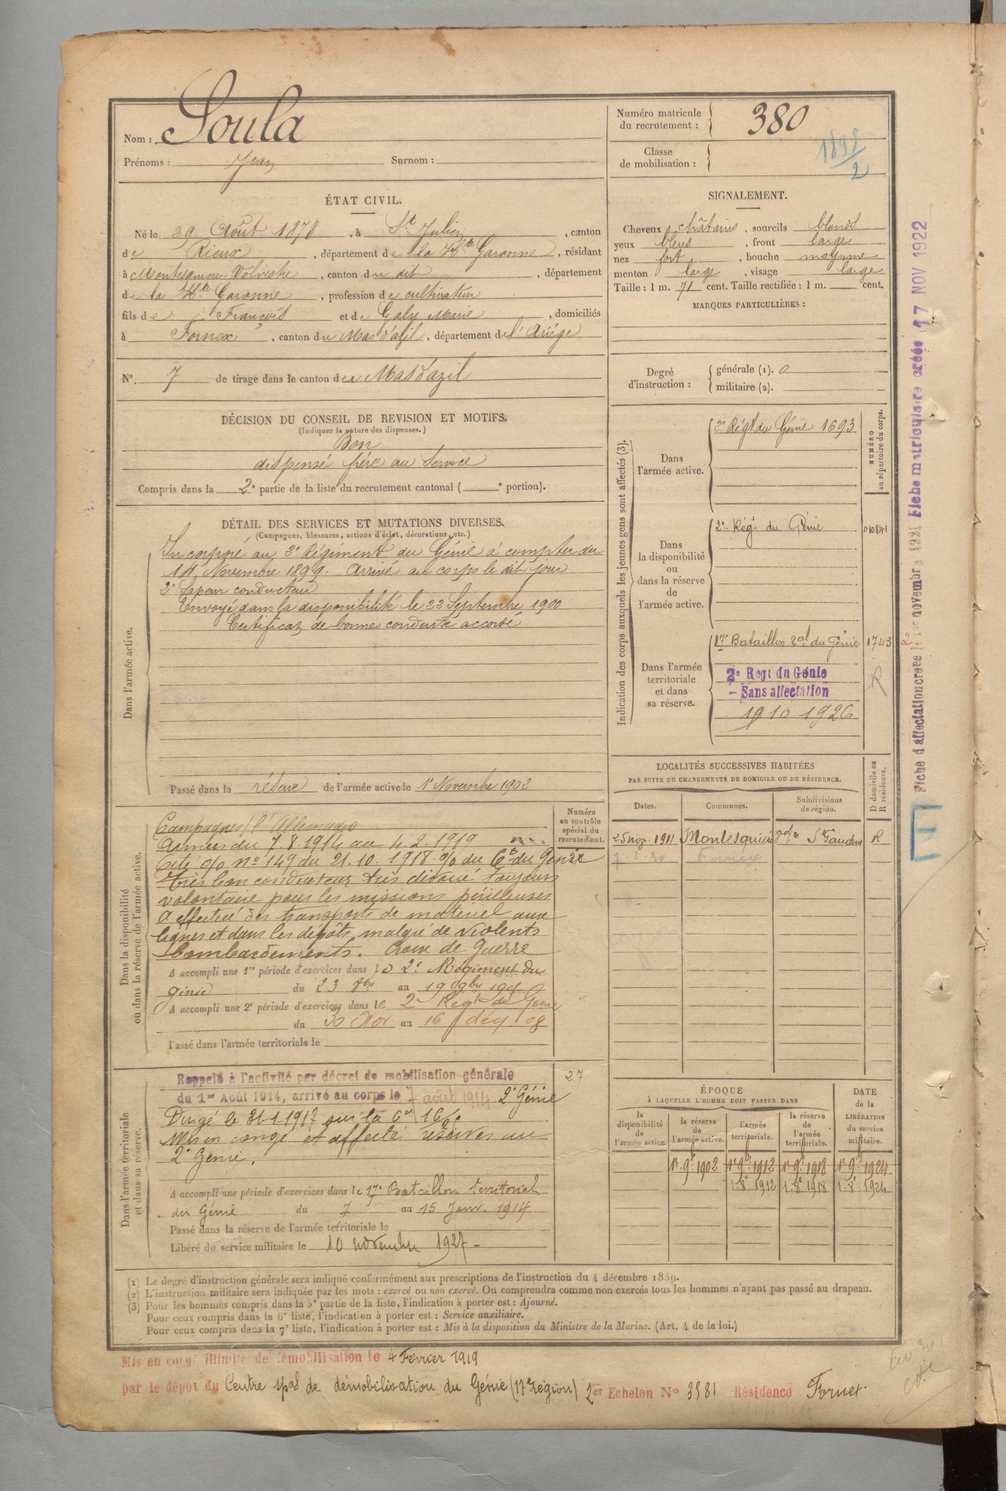 Nom : Soula
Prénoms : Jean Surnom :
Numéro matricule du recrutement : 380
Classe de mobilisation : 1898/2
ÉTAT CIVIL.
Né le 29 Août 1878, à St Julien, canton
de Rieux, département de la Hte Garonne, résidant
à Montesquieu-Volvestre, canton du dit, département
de la Hte Garonne, profession de cultivateur
fils de François et de Galy Marie, domiciliés
à Fornex, canton du Mas d'azil, département de l'Ariége
No. 7 de tirage dans le canton de Mas d'azil
DÉCISION DU CONSEIL DE REVISION ET MOTIFS.
(Indiquer la nature des dispenses.)
Bon
dispensé frère au service
Compris dans la 2e partie de la liste du recrutement cantonal ( e portion).
DÉTAIL DES SERVICES ET MUTATIONS DIVERSES.
(Campagnes, blessures, actions d'éclat, décorations, etc.)
Dans l'armée active.
Incorporé au 3e Régiment du Génie à compter du
14 Novembre 1899. Arrivé au corps le dit jour
2e Sapeur conducteur
Envoyé dans la disponibilité le 22 Septembre 1900
Certificat de bonne conduite accordé
Passé dans la réserve de l'armée active le 1er Novembre 1902
Numéro au contrôle spécial du recrutement.
Dans la disponibilité ou dans la réserve de l'armée active.
Campagnes c/ l'Allemagne
Armée du 7.8.1914 au 4.2.1919
Cité o/o no 149 du 21.10.1918 o/o du Ct du Génie
très bon conducteur très dévoué toujours
volontaire pour les missions périlleuses
a effectué des transports de matériel aux
lignes et dans les dépôts, malgré de violents
bombardements. Croix de Guerre
A accompli une 1re période d'exercices dans le 2e Régiment du
génie du 23 8bre au 19 9bre
A accompli une 2e période d'exercices dans le 2e Régt du Génie
du 30 Nov. au 16 déc 08
Passé dans l'armée territoriale le
Dans l'armée territoriale et dans sa réserve.
Rappelé à l'activité par décret de mobilisation générale 27
du 1er Août 1914, arrivé au corps le 7 août 1914 2e Génie
Dirigé le 31.1.1917 sur la Cie 16/
Mis en congé et affecté réserves au
2e Génie.
A accompli une période d'exercices dans le 17e Bataillon territorial
du Génie du 7 au 15 Janv. 1914
Passé dans la réserve de l'armée territoriale le
Libéré du service militaire le 10 novembre 1927.
SIGNALEMENT.
Cheveux châtains, sourcils blonds
yeux bleus, front large
nez fort, bouche moyenne
menton large, visage large
Taille : 1 m. 71 cent. Taille rectifiée : 1 m. cent.
MARQUES PARTICULIÈRES :
Degré d'instruction : générale (1). 0
militaire (2).
Indication des corps auxquels les jeunes gens sont affectés (3).
NUMÉRO au répertoire du corps.
Dans l'armée active. 3e Régt du Génie 1693
Dans la disponibilité ou dans la réserve de l'armée active. 2e Régt du Génie
Dans l'armée territoriale et dans sa réserve. 17e Bataillon Ral du Génie 1743
2e Régt du Génie R
Sans affectation
1910 1926
LOCALITÉS SUCCESSIVES HABITÉES
PAR SUITE DE CHANGEMENTS DE DOMICILE OU DE RÉSIDENCE.
Dates. Communes. Subdivisions de région. D domicile ou R résidence.
25 nov. 1911 Montesquieu Volvre St Gaudens R
Fornex
ÉPOQUE
À LAQUELLE L'HOMME DOIT PASSER DANS
DATE de la LIBÉRATION du service militaire.
la disponibilité de l'armée active. la réserve de l'armée active. l'armée territoriale. la réserve de l'armée territoriale.
1er 9e 1902 1er 9e 1912 1er 9e 1918 1er 9e 1924
1 8e 1912 1 8e 1918 1 8e 1924
(1) Le degré d'instruction générale sera indiqué conformément aux prescriptions de l'instruction du 4 décembre 1889.
(2) L'instruction militaire sera indiquée par les mots : exercé ou non exercé. On comprendra comme non exercés tous les hommes n'ayant pas passé au drapeau.
(3) Pour les hommes compris dans la 5e partie de la liste, l'indication à porter est : Ajourné.
Pour ceux compris dans la 6e liste, l'indication à porter est : Service auxiliaire.
Pour ceux compris dans la 7e liste, l'indication à porter est : Mis à la disposition du Ministre de la Marine. (Art. 4 de la loi.)
Mis en congé illimité de démobilisation le 4 Février 1919
par le dépôt du Centre spal de démobilisation du Génie (17e région) 2er Echelon No 3981 Résidence Fornex.
Fiche d'affectation créée le 1er novembre 1921 Fiche matriculaire créée 17 NOV 1922
E